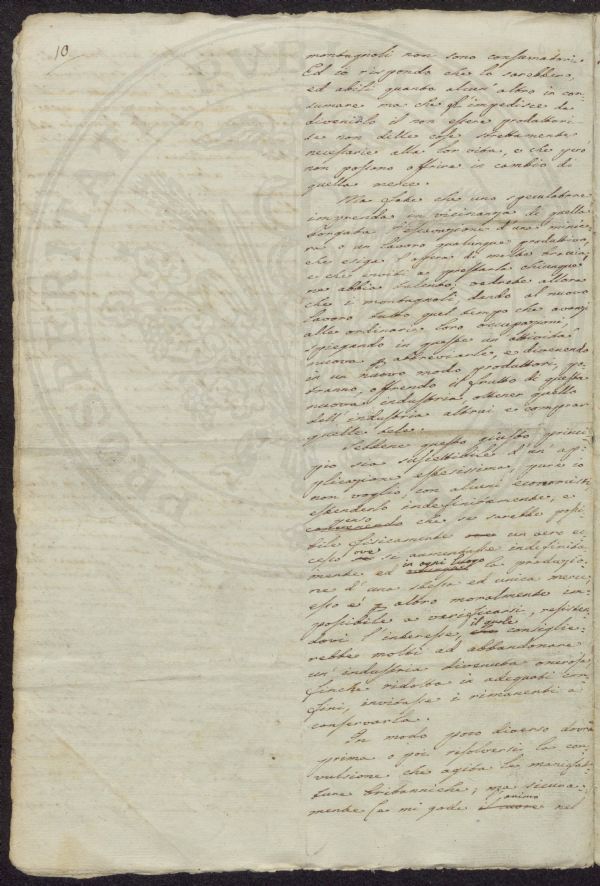 10
montagnoli non sono consumatori.
Ed io rispondo che lo sarebbero,
ed abili quanto alcun altro in con-
sumare ma che gl'impedisce da
divenirlo il non essere produttori
se non delle cose strettamente
necessarie alla lor vita, e che però
non possono offrire in cambio di
quella merce.
Ma fate che uno speculatore
imprenda in vicinanza di quella
borgata l'escavazione d'una minie-
ra o un lavoro qualunque produttivo,
che esiga l'opera di molte braccia,
e che inviti a prestarla chiunque
ne abbia talento, vedrete allora
che i montagnoli, dando al nuovo
lavoro tutto quel tempo che avanza
alle ordinarie loro occupazioni,
spiegando in queste un'attività
nuova p. abbreviarle, e divenendo
in un nuovo modo produttori, po-
tranno, offrendo il frutto di questa
nuova industria, ottener quello
dell'industria altrui e comprar
quelle tele.
Sebbene questo giusto princi-
pio sia suscettibile d'un ap-
plicazione estesissima, pure io
non voglio con alcuni economisti
estenderlo indefinitamente, e
penso
che se sarebbe possi-
bile fisicamente un vero ec-
cesso ove si aumentasse indefinita-
mente ed in ogni luogo la produzio-
ne d'una stessa ed unica merce,
esso è p. altro moralmente im-
possibile a verificarsi, resisten-
dovi l'interesse, il quale consiglie-
rebbe molti ad abbandonare
un'industria divenuta onerosa,
finchè ridotta in adequati con-
fini, invitasse i rimanenti a
conservarla.
In modo poco diverso dovrà
prima o poi resolversi la con-
vulsione che agita le manifat-
ture britanniche, ma sicura-
mente (a mi gode animo nel